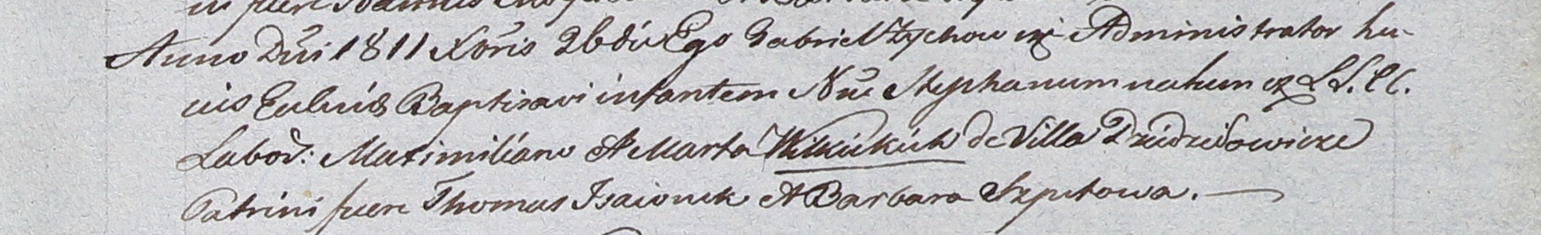 in fuere Joannis
Anno Dni 1811 Xbris 26 die Ego Gabriel Zychowicz Administrator hu-
ius Ecclesiæ Baptisavi infantem Nne Stephanum natum ex L L. C C.
Labor: Maximiliano et Marta Wilkickich de Villa Dziedziłowicze
Patrini fuere Thomas Isaionek et Barbara Szpetowa. —